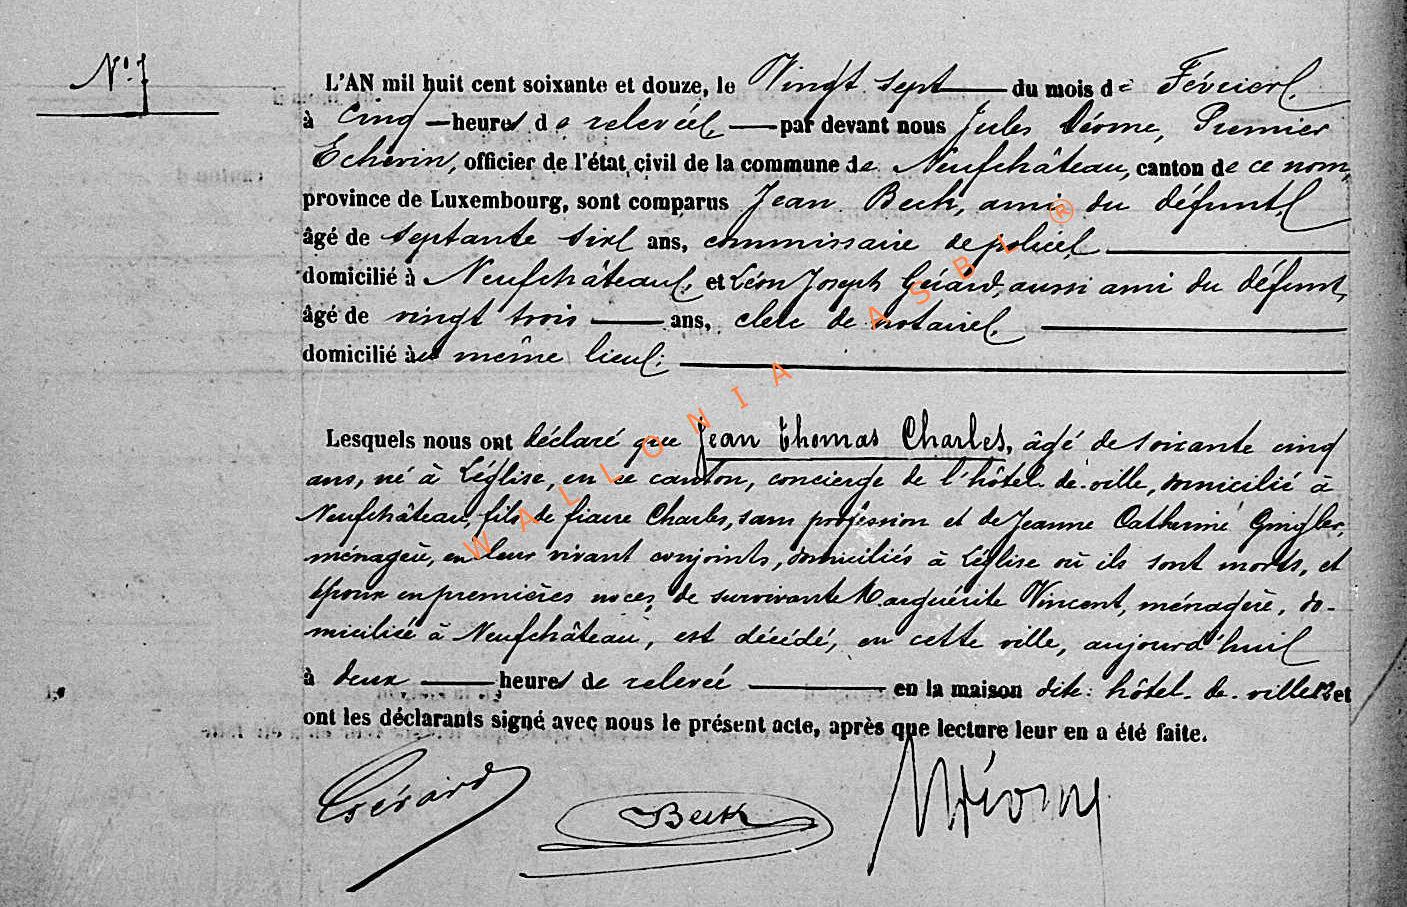 N° 7
L'AN mil huit cent soixante et douze, le Vingt sept du mois de Février,
à Cinq heures de relevée, par devant nous Jules Déome, Premier
Echevin, officier de l'état civil de la commune de Neufchâteau, canton de ce nom,
province de Luxembourg, sont comparus Jean Beck, ami du défunt,
âgé de septante six ans, commissaire de police,
domicilié à Neufchâteau, et Léon Joseph Gérard, aussi ami du défunt,
âgé de vingt trois ans, clerc de notaire,
domicilié au même lieu;
Lesquels nous ont déclaré que Jean Thomas Charles, âgé de soixante cinq
ans, né à Léglise, en ce canton, concierge de l'hôtel-de-ville, domicilié à
Neufchâteau, fils de Charles, sans profession et de Jeanne Catherine Gringler,
ménagère, en leur vivant conjoints, domiciliés à Léglise où ils sont morts, et
époux en premières noces, de survivante Marguérite Vincent, ménagère, do-
miciliée à Neufchâteau, est décédé, en cette ville, aujourd'hui
à deux heures de relevée en la maison dite: hôtel-de-ville et
ont les déclarants signé avec nous le présent acte, après que lecture leur en a été faite.
Gérard
Beck
JDéome
WALLONIA ASBL ®